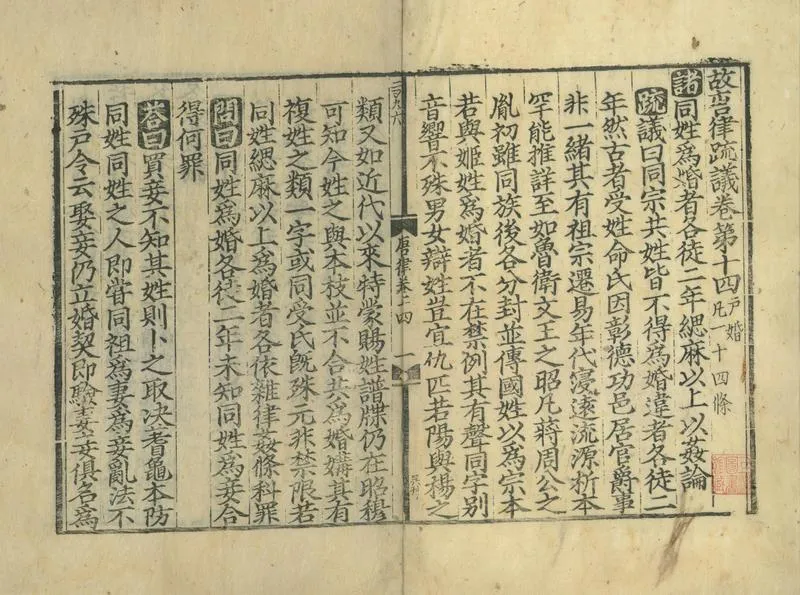 故唐律疏議卷第十四 戶婚 凡一十四條
諸同姓爲婚者各徒二年緦麻以上以姦論
疏議曰同宗共姓皆不得爲婚違者各徒二
年然古者受姓命氏因彰德功邑居官爵事
非一緒其有祖宗遷易年代浸遠流源析本
罕能推詳至如魯衛文王之昭凡蔣周公之
胤初雖同族後各分封並傳國姓以爲宗本
若與姬姓爲婚者不在禁例其有聲同字別
音響不殊男女辯姓豈宜仇匹若陽與楊之
唐律卷十四
一
類又如近代以來特蒙賜姓譜牒仍在昭穆
可知今姓之與本枝並不合共爲婚媾其有
複姓之類一字或同受氏旣殊元非禁限若
同姓緦麻以上爲婚者各依雜律姦條科罪
問曰同姓爲婚各徒二年未知同姓爲妾合
得何罪
荅曰買妾不知其姓則卜之取决蓍龜本防
同姓同姓之人即甞同祖爲妻爲妾亂法不
殊戶令云娶妾仍立婚契即驗妻妾俱名爲